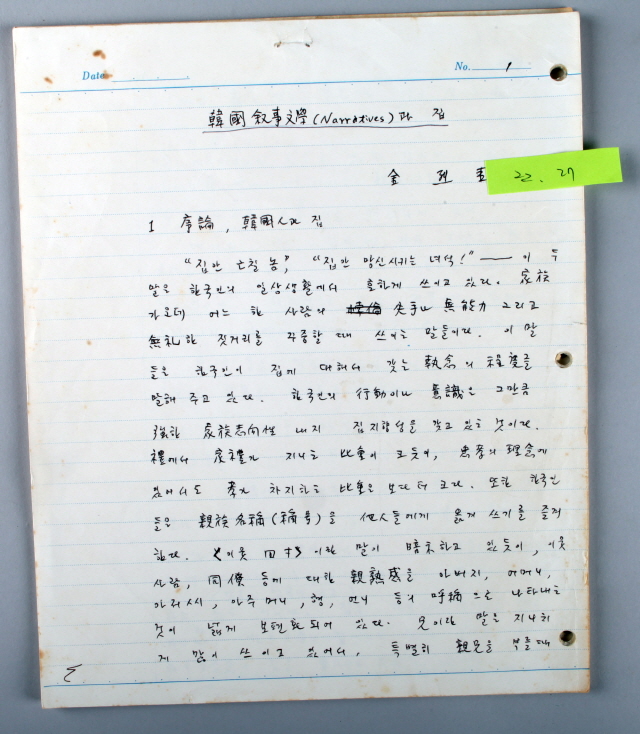 Date
No. 1
韓國敍事文學(Narratives)과 집
金 烈 圭
22. 27
1 序論, 韓國人과 집
"집안 亡칠 놈", "집안 망신시키는 녀석!" —— 이 두
말은 한국인의 일상생활에서 흔하게 쓰이고 있다. 家族
가운데 어느 한 사람의 失手나 無能力 그리고
無礼한 짓거리를 각중할 때 쓰이는 말들이다. 이 말
들은 한국인이 집에 대해서 갖는 執念의 程度를
말해 주고 있다. 한국인의 行動이나 意識은 그만큼
強한 家族志向性 내지 집지향성을 갖고 있는 것이다.
禮에서 家禮가 지니는 比重이 크듯이, 忠孝의 理念에
있어서도 孝가 차지하는 比重은 보다 더 크다. 또한 한국인
들은 親族名稱(稱号)을 他人들에게 옮겨 쓰기를 즐겨
한다. 《이웃 四寸》이란 말이 暗示하고 있듯이, 이웃
사람, 同僚 등에 대한 親熟感을 아버지, 어머니,
아저씨, 아주머니, 형, 언니 등의 呼稱으로 나타내는
것이 넓게 보편화되어 있다. 兄이란 말은 지나치
게 많이 쓰이고 있어서, 특별히 親兄을 부를 때